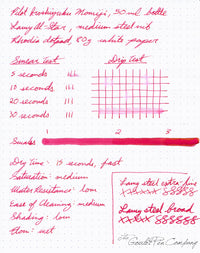 Pilot Iroshizuku Momiji, 50ml bottle
Lamy All-Star, medium steel nib
Rhodia dotpad, 80g white paper
Smear Test
Drip Test
5 seconds
10 seconds
20 seconds
30 seconds
Swabs
1
2
3
Dry Time: 15 seconds, fast
Saturation: medium
Water Resistance: low
Ease of Cleaning: medium
Shading: low
Flow: wet
Lamy steel extra-fine
Lamy steel broad
The Goulet Pen Company